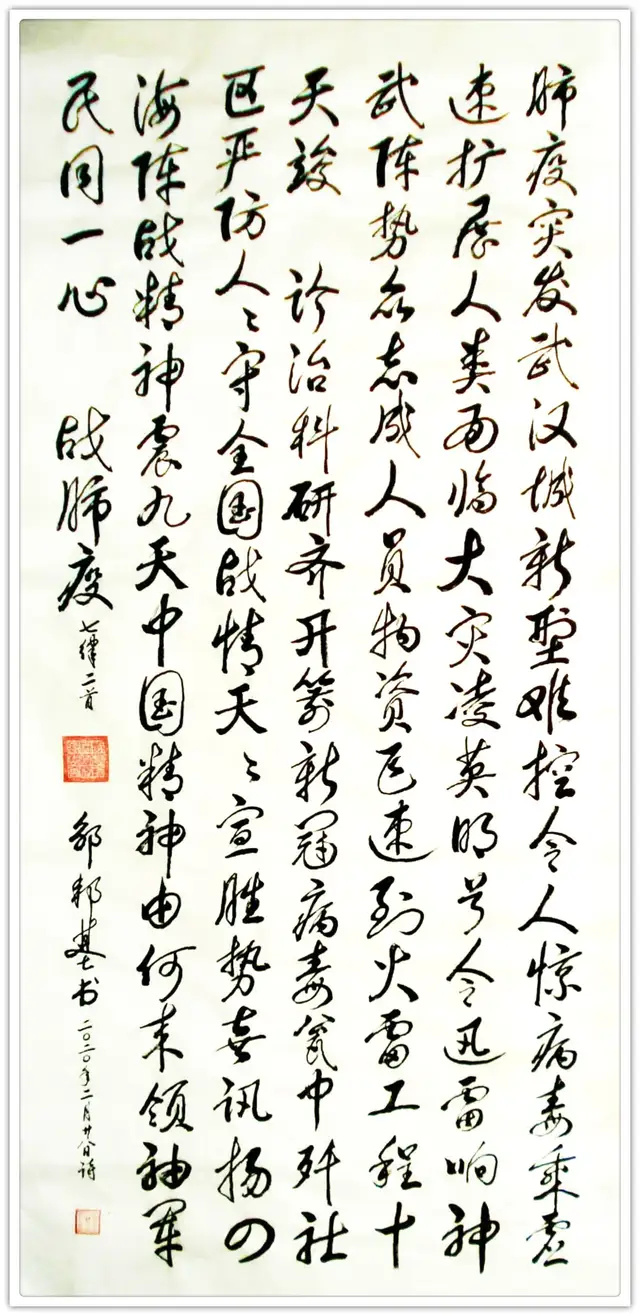 肺疫突发武汉城新型难控令人惊病毒乘虚
速扩展人类面临大灾凌英明号令迅雷响神
武阵势众志成人员物资飞速到火雷工程十
天竣 诊治科研齐开箭新冠病毒瓮中歼社
区严防人々守全国战情天々宣胜势喜讯扬四
海阵战精神震九天中国精神由何来领袖军
民同一心 战肺疫 七律二首 邦基书 二〇二〇年二月廿日诗